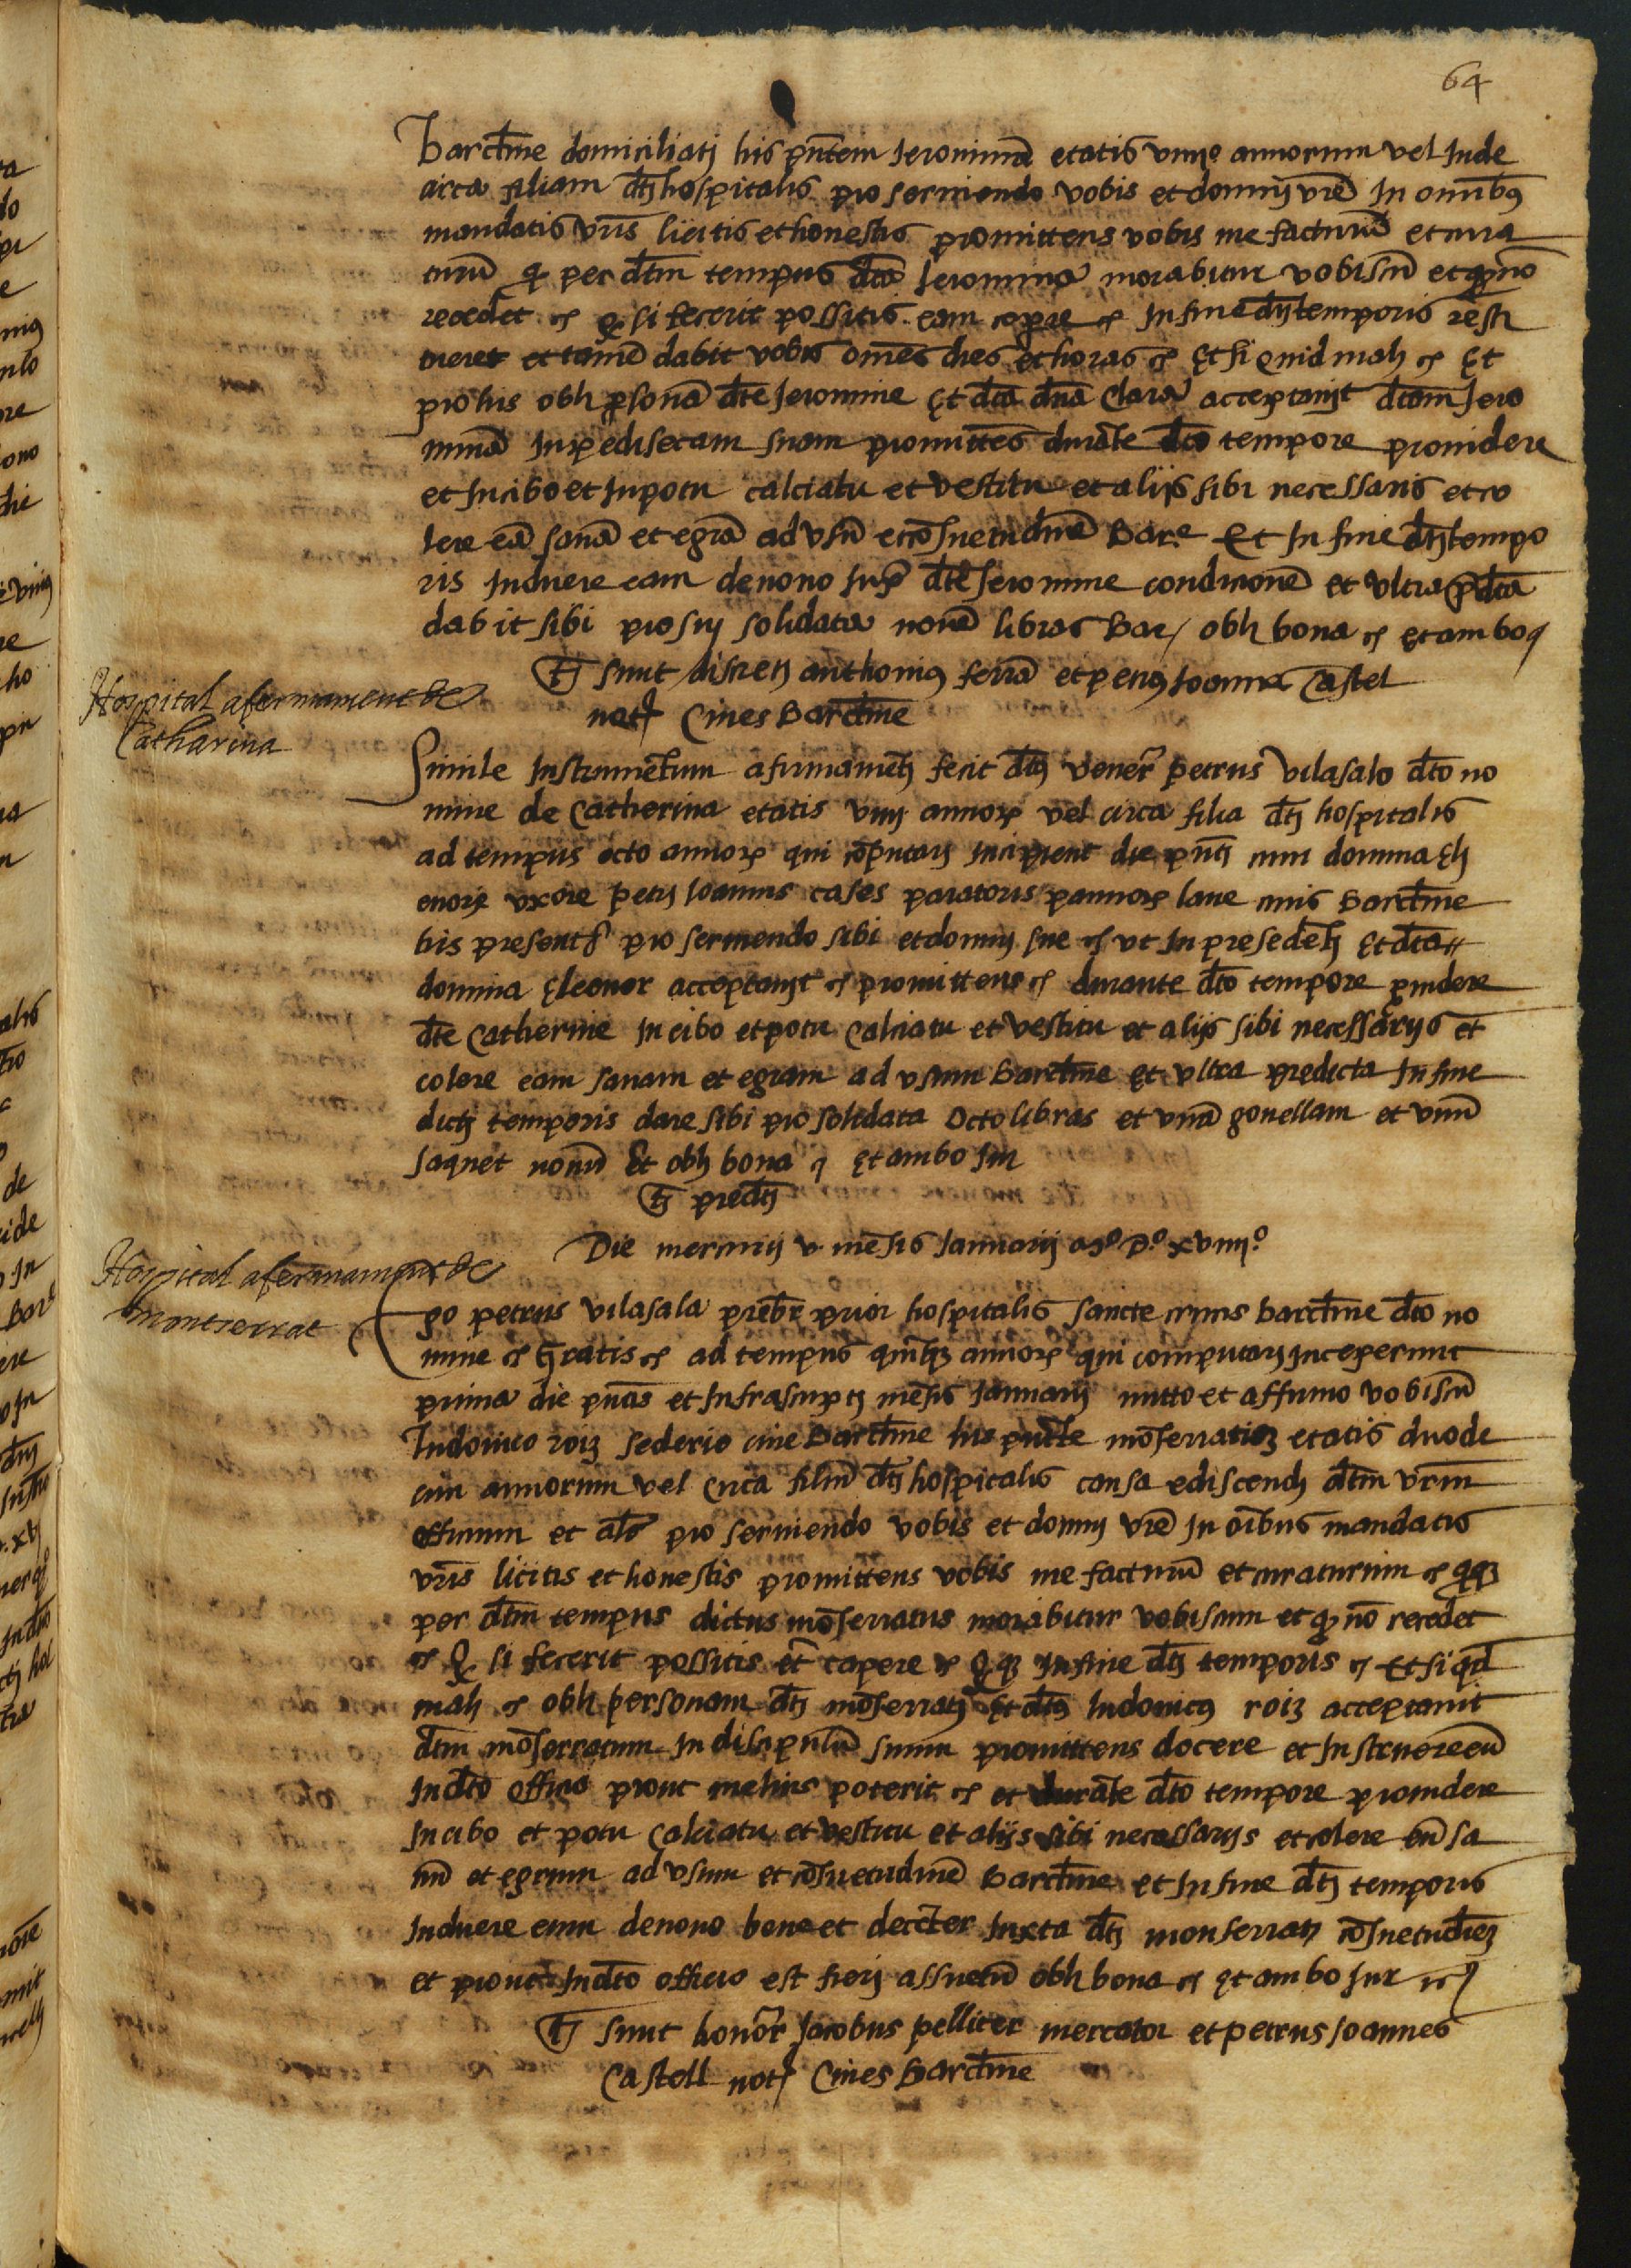 64
Barc̄lne domiciliati his pn̄tem Jeronimā etatis viiij annorum vel Inde
circa filiam dc̄ti hospitalis pro serviendo vobis et domui vr̄e In omnibus
mandatis vr̄is licitis et honestis promittens vobis me facturū et cura
turū q per dc̄tm tempus dc̄ta Jeronima morabitur vobiscū et q nō
recedet &c si fecerit possitis eam capere &c In fine dc̄ti temporis resti
tueret et tamē dabit vobis om̄es dies et horas &c Et si quid mali &c Et
pro his obli p̄sonā dc̄te Jeronime Et dc̄ta dn̄a Clara acceptavit dc̄tam Jero
nimā In pedisecam suam promittēs durāte dc̄to tempore providere
et In cibo et In potu calciatu et vestitu et aliis sibi necessariis et co
lere eā sanā et egrā ad usū et cōsuetudinē Bar.e Et In fine dc̄ti tempo
ris Induere eam de novo dc̄te Jeronime condicionē et ultra p̄dc̄ta
dabit sibi pro sui solidata novē libras Bar/ obli bona &c Et ambo
Tˢ sunt discreti anthonius ferrā et petrus Joannes Castel
not. Cives Barc̄lne
Hospital afermament de
Catharina
Simile Instrumētum afirmamēti fecit dc̄tus vener̄ petrus vilasalo dc̄to no
mine de Catherina etatis viiij annoꝝ vel circa filia dc̄ti hospitalis
ad tempus octo annoꝝ qui cōputari Incipient die pn̄ti cum domina Eli
enore uxore petri Joannis cases paratoris pannoꝝ lane civis Barc̄lne
his present. pro serviendo sibi et domui sue &c ut In presedēti Et dc̄ta
domina Eleonor acceptavit &c promittens &c durante dc̄to tempore p̄videre
dc̄te Catherine In cibo et potu Calciatu et vestitu et aliis sibi necessariis et
colere eam sanam et egram ad usum Barc̄lne et ultra predicta In fine
dicti temporis dare sibi pro solidata Octo libras et unā gonellam et unū
saquet novū Et obli bona &c Et ambo Jur
Tˢ predc̄ti
Die mercurij v. mēsis Januarij aº. Dº. xviiijº.
Hospital afermament de
Montserrat
Ego petrus vilasala prebr̄ prior hospitalis sancte crucis barc̄lne dc̄to no
mine &c Gratis &c ad tempus quinqꝫ annoꝝ qui computari Inceperunt
prima die pn̄tis et Infrascripti mēsis Januarij mitto et affirmo vobiscū
Ludovico roiz sederio cive Barc̄lne his pn̄te mōserratū etatis duode
cim annorum vel circa filiū dc̄ti hospitalis causa ediscendi dc̄tm vr̄m
officium et al̄s pro serviendo vobis et domui vr̄e In oībus mandatis
vr̄is licitis et honestis promittens vobis me facturū et curaturum &c
per dc̄tm tempus dictus mōserratus morabitur vobiscum et q nō recedet
&c Q si fecerit possitis eū capere &c In fine dc̄ti temporis &c Et si qd
mali &c obli personam dc̄ti mōserrati Et dc̄tus ludovicus roiz acceptavit
dc̄tm mōserratum In discipulū suum promittens docere et Instruere eū
In dc̄to officio prout melius poterit &c et durāte dc̄to tempore providere
In cibo et potu Calciatu et vestitu et aliis sibi necessariis et colere eū sa
nū et egrum ad usum et cōsuetudinē Barc̄lne et In fine dc̄ti temporis
Induere eum de novo bene et decēter Juxta dc̄ti monserrati cōsuetudinē
et prout In dc̄to officio est fieri assuetū obli bona &c Et ambo Jur &c
Tˢ sunt honor̄ Jacobus pelliter mercator et petrus Joannes
Castell not. Cives Barc̄lne